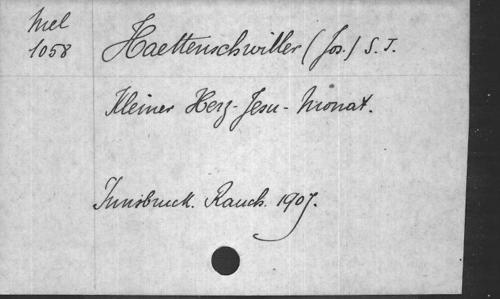 Mel
1058
Haettenschwiller (Jos.) S. J.
Kleiner Herz-Jesu-Monat.
Innsbruck. Rauch. 1907.